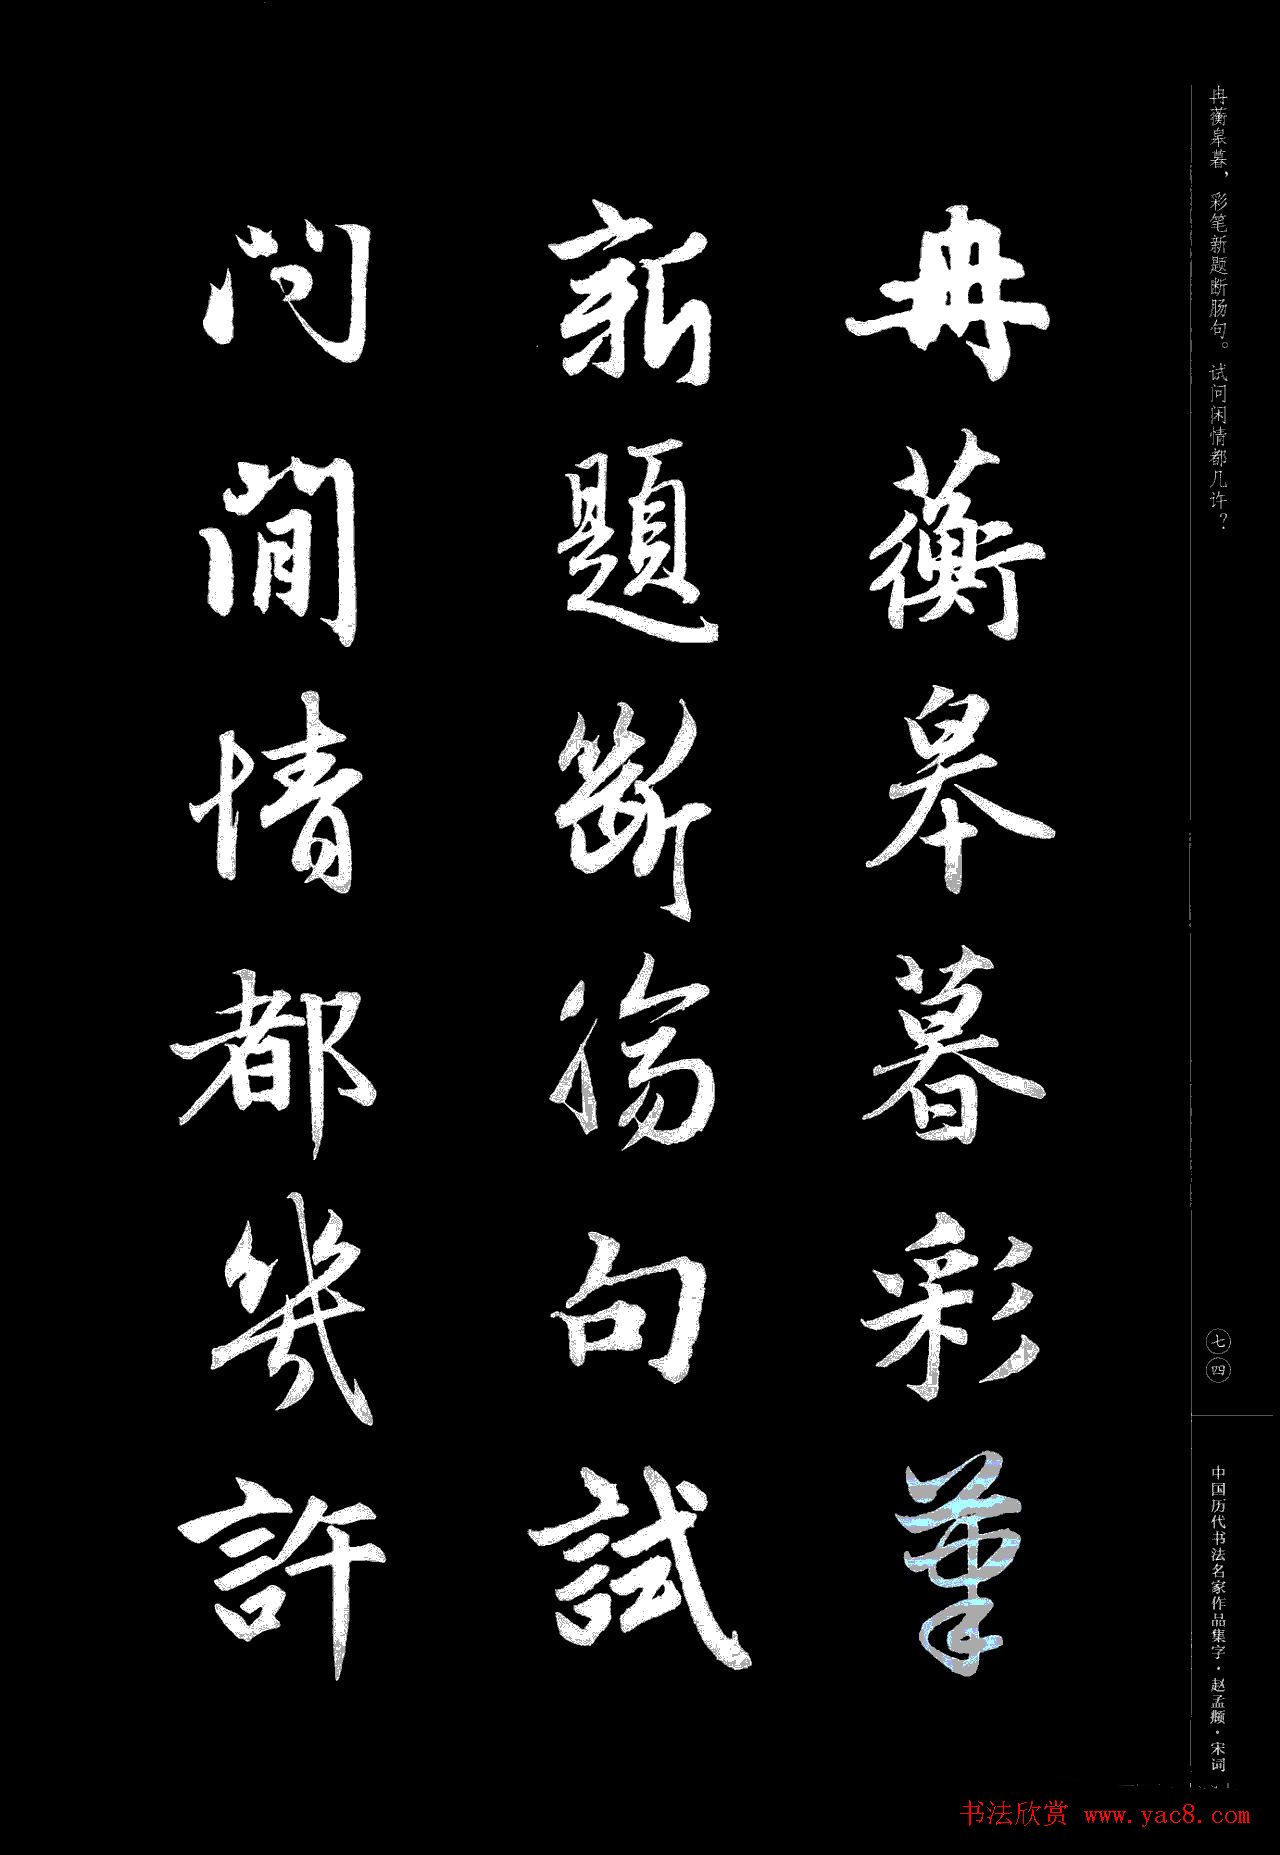 冉蘅皋暮,彩笔新题断肠句。试问闲情都几许?
冉蘅皋暮彩筆
新題斷腸句試
問閒情都幾許
七四
中国历代书法名家作品集字·赵孟頫·宋词
书法欣赏 www.yac8.com